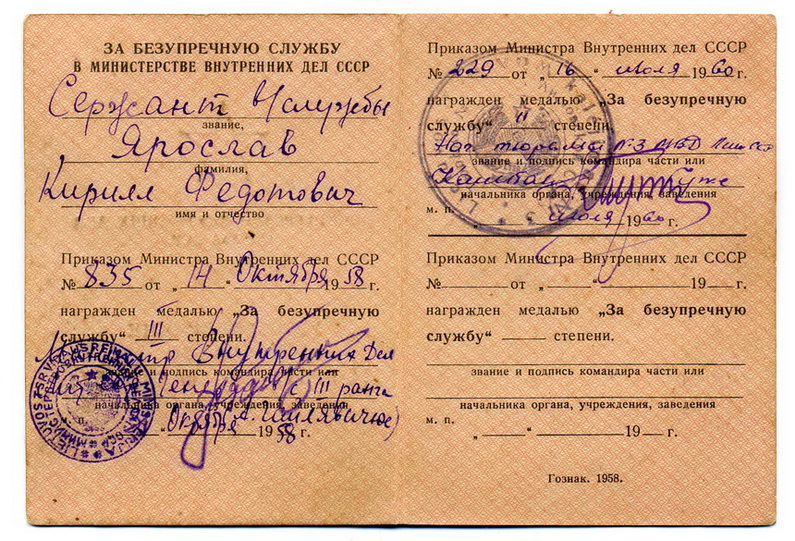 ЗА БЕЗУПРЕЧНУЮ СЛУЖБУ
В МИНИСТЕРСТВЕ ВНУТРЕННИХ ДЕЛ СССР
Сержант В/службы
звание,
Ярослав
фамилия,
Кирилл Федотович
имя и отчество
Приказом Министра Внутренних дел СССР
№ 835 от „ 14 Октября 1958 г.
награжден медалью „За безупречную
службу“ III степени.
Министр Внутренних Дел
звание и подпись командира части или
III ранга
начальника органа, учреждения, заведения
Октября 1958
LIETUVOS TSR VIDAUS REIKALŲ MINISTERIJA
Приказом Министра Внутренних дел СССР
№ 229 от „ 16 “ июля 1960 г.
награжден медалью „За безупречную
службу“ II степени.
Нач тюрьмы №3 МВД Лит ССР
звание и подпись командира части или
Капитан
начальника органа, учреждения, заведения
м. п. „ июля 1960 г.
Приказом Министра Внутренних дел СССР
№ от „ “ 19 г.
награжден медалью „За безупречную
службу“ степени.
звание и подпись командира части или
начальника органа, учреждения, заведения
м. п.
„ “ 19 г.
Гознак. 1958.